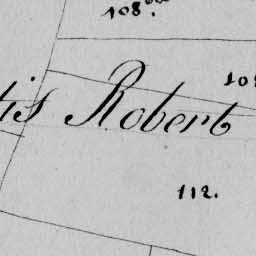 108.
tis Robert
112.